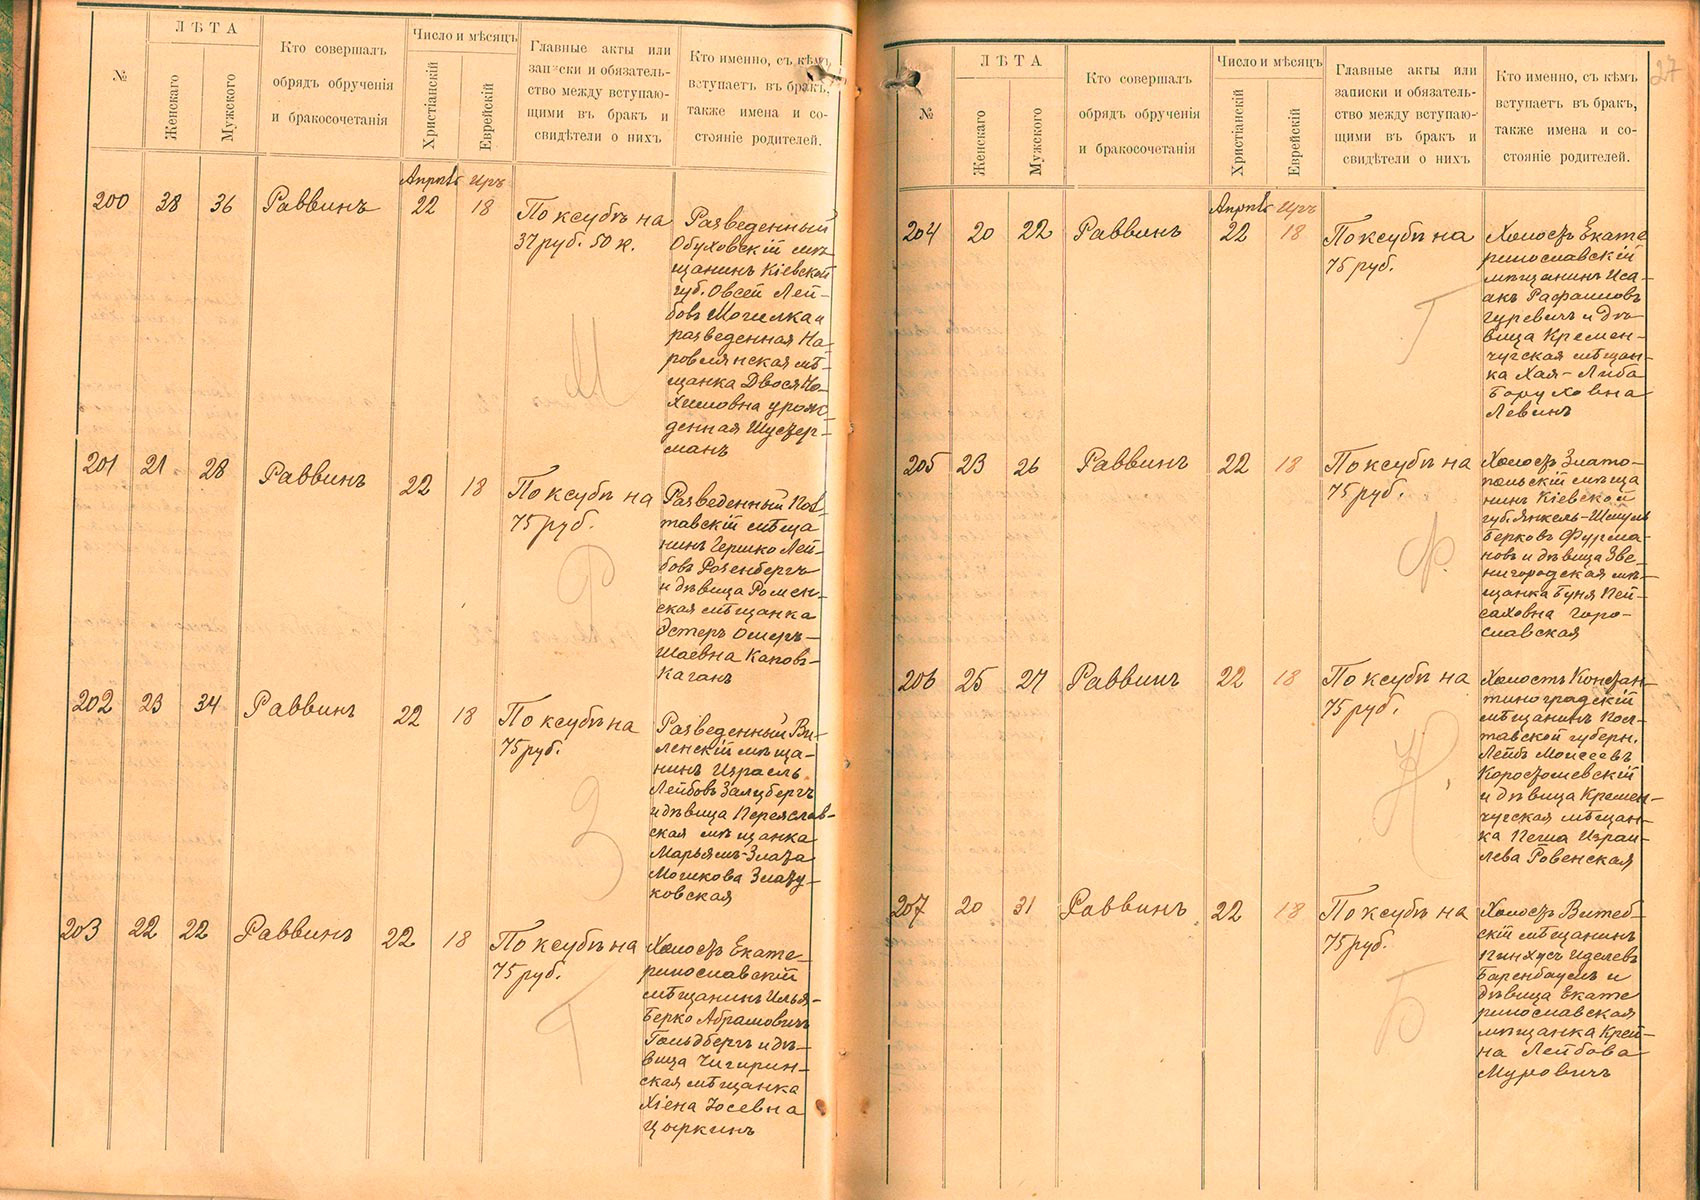 №
ЛѢТА
Женскаго
Мужского
Кто совершалъ
обрядъ обрученія
и бракосочетанія
Число и мѣсяцъ
Христіанскій
Еврейскій
Главные акты или
записки и обязатель-
ство между вступаю-
щими въ бракъ и
свидѣтели о нихъ
Кто именно, съ кѣмъ
вступаетъ въ бракъ,
также имена и со-
стояніе родителей.
Апрѣль Иръ
200 38 36 Раввинъ 22 18
По ксубѣ на
37 руб. 50 к.
Разведенный
Обуховскій мѣ-
щанинъ Кіевской
губ. Овсей Лей-
бовъ Могилка и
разведенная На-
ровлянская мѣ-
щанка Двося На-
химовна урож-
денная Шустер-
манъ
М
201 21 28 Раввинъ 22 18
По ксубѣ на
75 руб.
Разведенный Пол-
тавскій мѣща
нинъ Гершко Лей-
бовъ Розенбергъ
и дѣвица Ромен-
ская мѣщанка
Эстеръ Ошеръ-
Шаевна Каповъ-
Каганъ
Р
202 23 34 Раввинъ 22 18
По ксубѣ на
75 руб.
Разведенный Ви-
ленскій мѣща-
нинъ Израель
Лейбовъ Залцбергъ
и дѣвица Переяслав-
ская мѣщанка
Марьямъ-Злата
Мошкова Злату-
ковская
З
203 22 22 Раввинъ 22 18
По ксубѣ на
75 руб.
Холостъ Екате-
ринославскій
мѣщанинъ Илья-
Берко Абрамовичъ
Гольдбергъ и дѣ-
вица Чигирин-
ская мѣщанка
Хіена Іосевна
Цыркинъ
Г
27
№
ЛѢТА
Женскаго
Мужского
Кто совершалъ
обрядъ обрученія
и бракосочетанія
Число и мѣсяцъ
Христіанскій
Еврейскій
Главные акты или
записки и обязатель-
ство между вступаю-
щими въ бракъ и
свидѣтели о нихъ
Кто именно, съ кѣмъ
вступаетъ въ бракъ,
также имена и со-
стояніе родителей.
Апрѣль Иръ
204 20 22 Раввинъ 22 18
По ксубѣ на
75 руб.
Холостъ Екате
ринославскій
мѣщанинъ Иса-
акъ Рафаиловъ
Гуревичъ и дѣ-
вица Кремен-
чугская мѣщан-
ка Хая-Либа
Боруховна
Левинъ
Г
205 23 26 Раввинъ 22 18
По ксубѣ на
75 руб.
Холостъ Злато-
польскій мѣща
нинъ Кіевской
губ. Янкель-Шмуль
Берковъ Фурма-
новъ и дѣвица Зве-
нигородская мѣ-
щанка Буня Пей-
саховна Горо-
славская
Ф.
206 25 27 Раввинъ 22 18
По ксубѣ на
75 руб.
Холостъ Констан-
тиноградскій
мѣщанинъ Пол-
тавской губерн.
Лейбъ Моисеевъ
Коростошевскій
и дѣвица Кремен-
чугская мѣщан-
ка Песша Израи-
лева Ровенская
К.
207 20 31 Раввинъ 22 18
По ксубѣ на
75 руб.
Холостъ Витеб-
скій мѣщанинъ
Пинхусъ Иделевъ
Баренбаумъ и
дѣвица Екате
ринославская
мѣщанка Крей-
на Лейбова
Муровичъ
Б